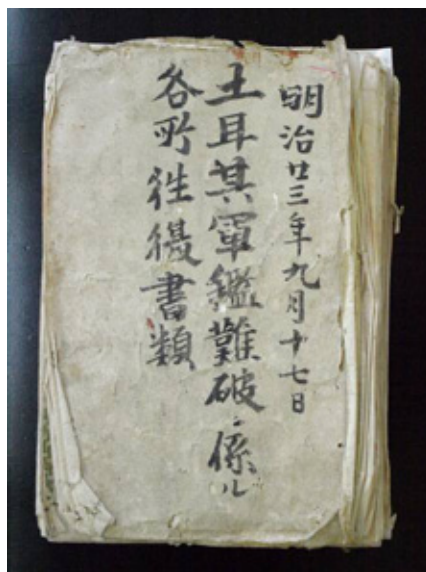 明治廿三年九月十七日
土耳其軍鑑難破ニ係ル
各所往復書類